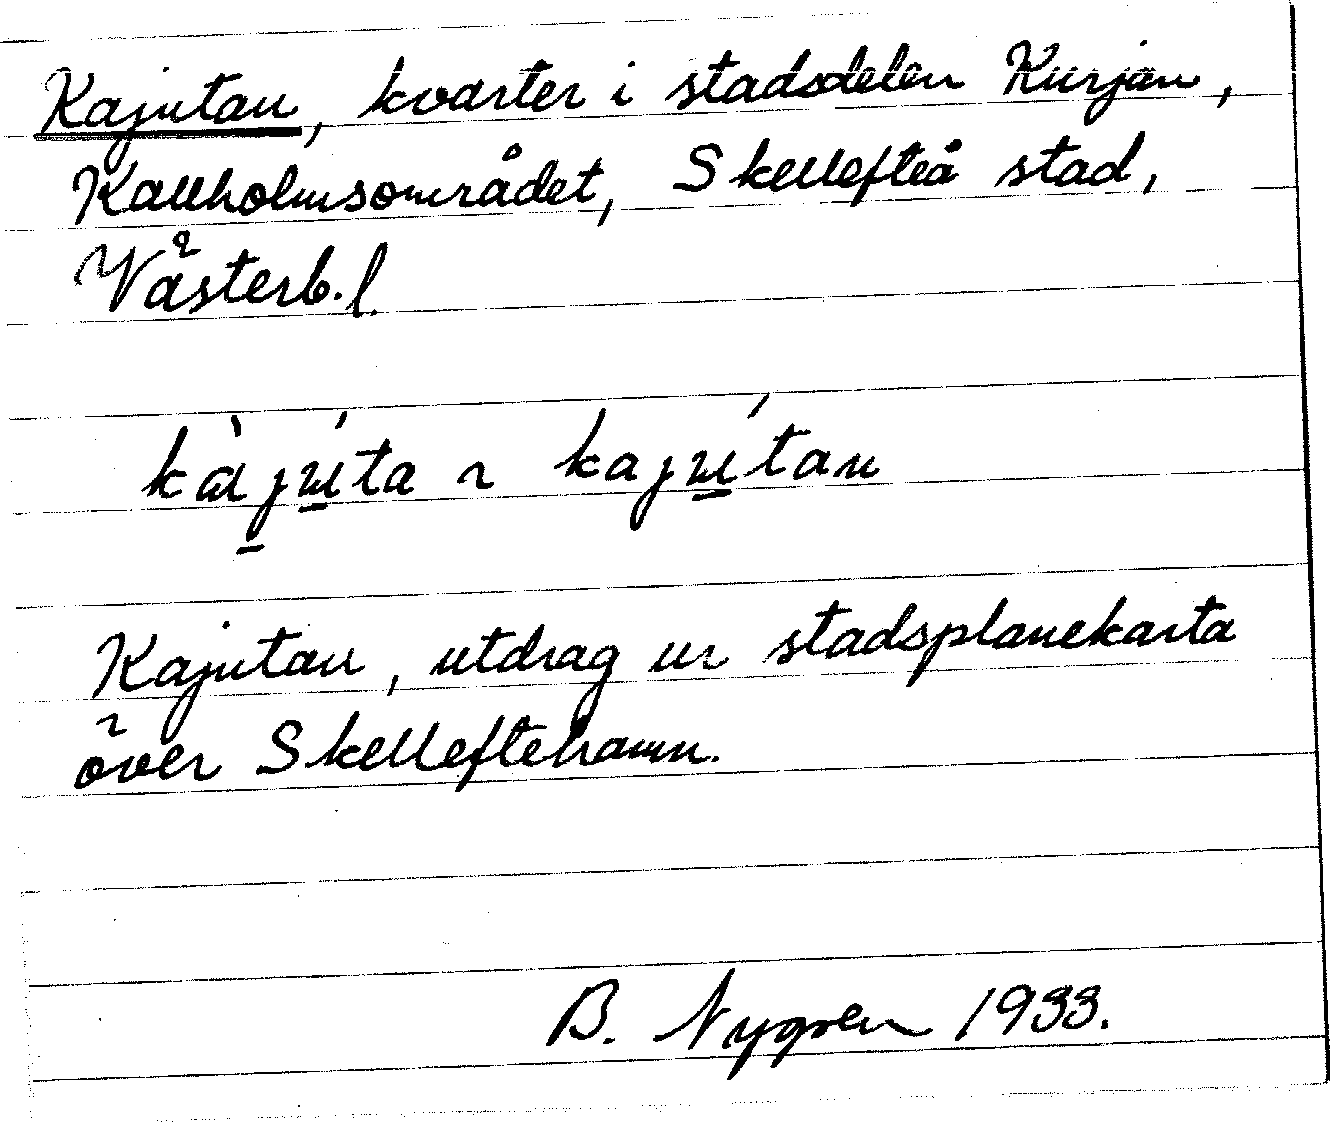 Kajutan, kvarter i stadsdelen Kurjan,
Kallholmsområdet, Skellefteå stad,
Västerb.l.
kàjúta ~ kajútan
Kajutan, utdrag ur stadsplanekarta
över Skelleftehamn.
B. Nygren 1933.